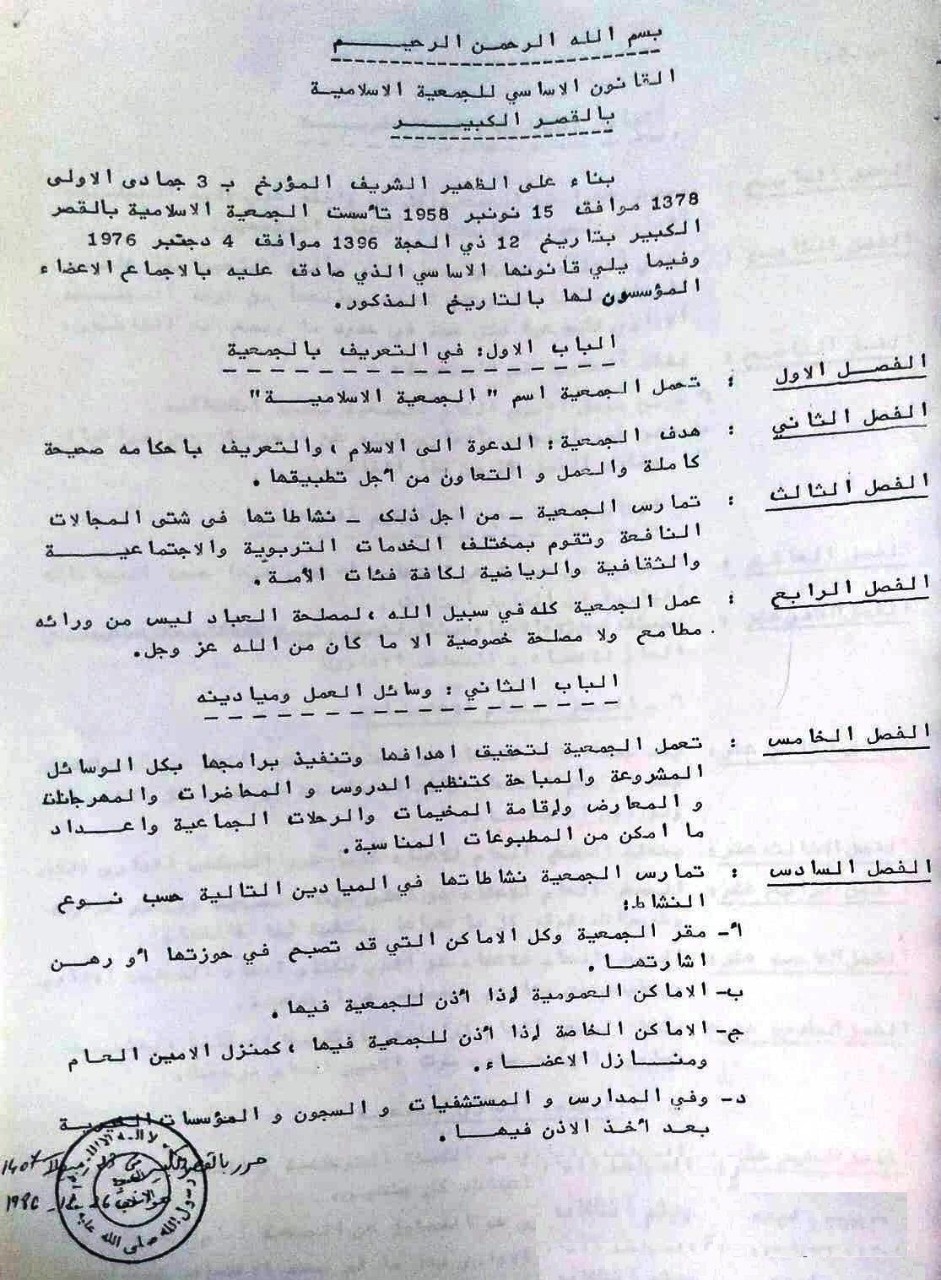 بسم الله الرحمن الرحيم
القانون الاساسي للجمعية الاسلامية
بالقصر الكبير
بناء على الظهير الشريف المؤرخ ب 3 جمادى الاولى
1378 موافق 15 نونبر 1958 تأسست الجمعية الاسلامية بالقصر
الكبير بتاريخ 12 ذي الحجة 1396 موافق 4 دجنبر 1976
وفيما يلي قانونها الاساسي الذي صادق عليه بالاجماع الاعضاء
المؤسسون لها بالتاريخ المذكور.
الباب الاول: في التعريف بالجمعية
الفصل الاول : تحمل الجمعية اسم " الجمعية الاسلامية "
الفصل الثاني : هدف الجمعية: الدعوة الى الاسلام، والتعريف باحكامه صحيحة
كاملة والعمل و التعاون من أجل تطبيقها.
الفصل الثالث : تمارس الجمعية - من اجل ذلك - نشاطاتها في شتى المجالات
النافعة وتقوم بمختلف الخدمات التربوية والاجتماعية
والثقافية والرياضية لكافة فئات الأمة.
الفصل الرابع : عمل الجمعية كله في سبيل الله، لمصلحة العباد ليس من ورائه
مطامع ولا مصلحة خصوصية الا ما كان من الله عز وجل.
الباب الثاني : وسائل العمل وميادينه
الفصل الخامس : تعمل الجمعية لتحقيق اهدافها وتنفيذ برامجها بكل الوسائل
المشروعة والمباحة كتنظيم الدروس و المحاضرات والمهرجانات
و المعارض وإقامة المخيمات والرحلات الجماعية واعداد
ما امكن من المطبوعات المناسبة.
الفصل السادس : تمارس الجمعية نشاطاتها في الميادين التالية حسب نوع
النشاط:
أ- مقر الجمعية وكل الاماكن التي قد تصبح في حوزتها أو رهن
اشارتها.
ب- الاماكن العمومية إذا أذن للجمعية فيها.
ج- الاماكن الخاصة إذا أذن للجمعية فيها، كمنزل الامين العام
ومنازل الاعضاء.
د- وفي المدارس و المستشفيات و السجون و المؤسسات
بعد أخذ الاذن فيها.
حرر بالقصر 1407
26 - 12 - 1986
لا اله الا الله
رسول الله صلى الله عليه